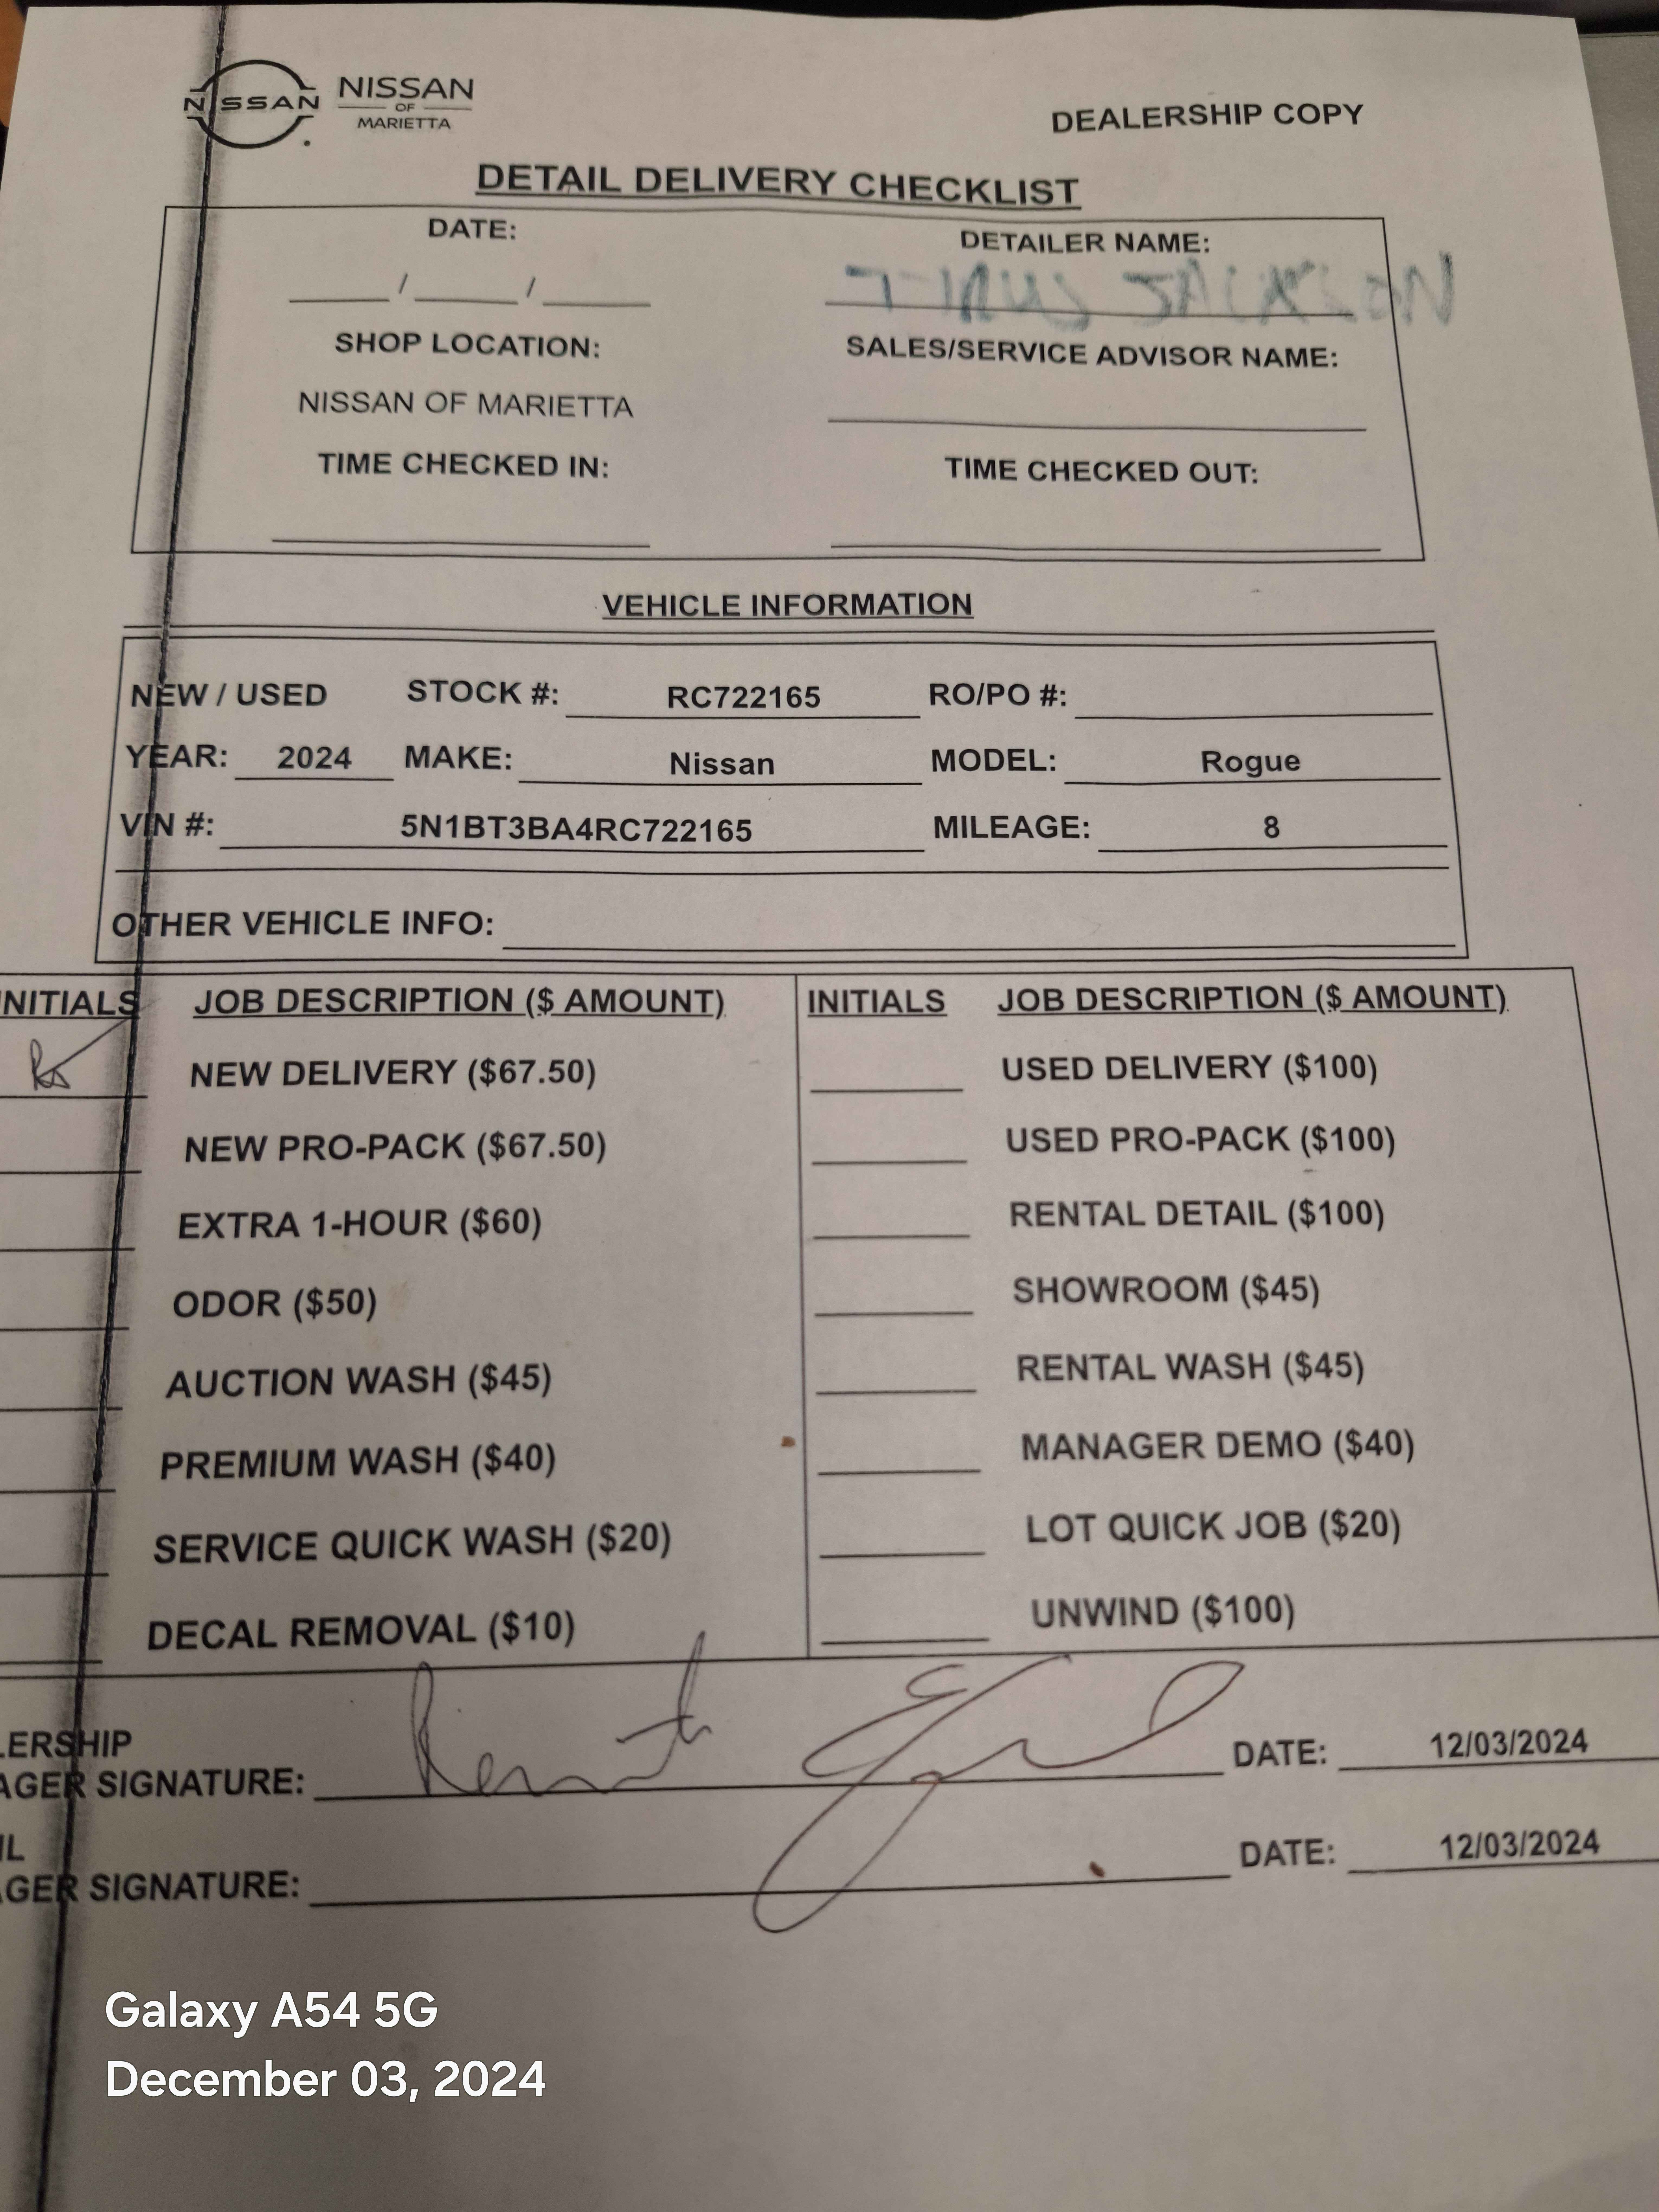 NISSAN NISSAN
OF
MARIETTA
DEALERSHIP COPY
DETAIL DELIVERY CHECKLIST
DATE: DETAILER NAME:
/ /
SHOP LOCATION: SALES/SERVICE ADVISOR NAME:
NISSAN OF MARIETTA
TIME CHECKED IN: TIME CHECKED OUT:
VEHICLE INFORMATION
NEW / USED STOCK #: RC722165 RO/PO #:
YEAR: 2024 MAKE: Nissan MODEL: Rogue
VIN #: 5N1BT3BA4RC722165 MILEAGE: 8
OTHER VEHICLE INFO:
NITIALS JOB DESCRIPTION ($ AMOUNT) INITIALS JOB DESCRIPTION ($ AMOUNT)
NEW DELIVERY ($67.50) USED DELIVERY ($100)
NEW PRO-PACK ($67.50) USED PRO-PACK ($100)
EXTRA 1-HOUR ($60) RENTAL DETAIL ($100)
ODOR ($50) SHOWROOM ($45)
AUCTION WASH ($45) RENTAL WASH ($45)
PREMIUM WASH ($40) MANAGER DEMO ($40)
SERVICE QUICK WASH ($20) LOT QUICK JOB ($20)
DECAL REMOVAL ($10) UNWIND ($100)
LERSHIP
AGER SIGNATURE: DATE: 12/03/2024
IL
AGER SIGNATURE: DATE: 12/03/2024
Galaxy A54 5G
December 03, 2024